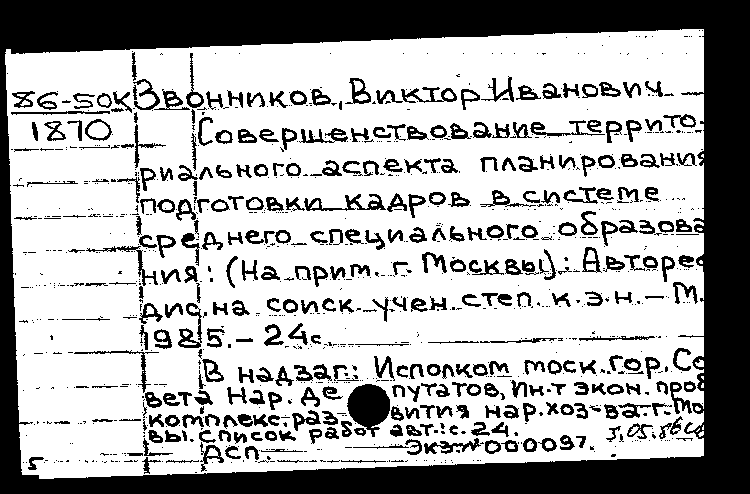 86-50К Звонников, Виктор Иванович
1870 Совершенствование террито-
риального аспекта планирования
подготовки кадров в системе
среднего специального образова
ния: (На прим. г. Москвы): Авторе
дис. на соиск. учен. степ. к.э.н. – М.
1985. – 24с.
В надзаг.: Исполком моск. гор. Со
вета Нар. де путатов, Ин-т экон. проб
комплекс. раз вития нар. хоз-ва г. Мо
вы. Список работ авт.: с. 24.
ДСП. Экз. № 000097.
5